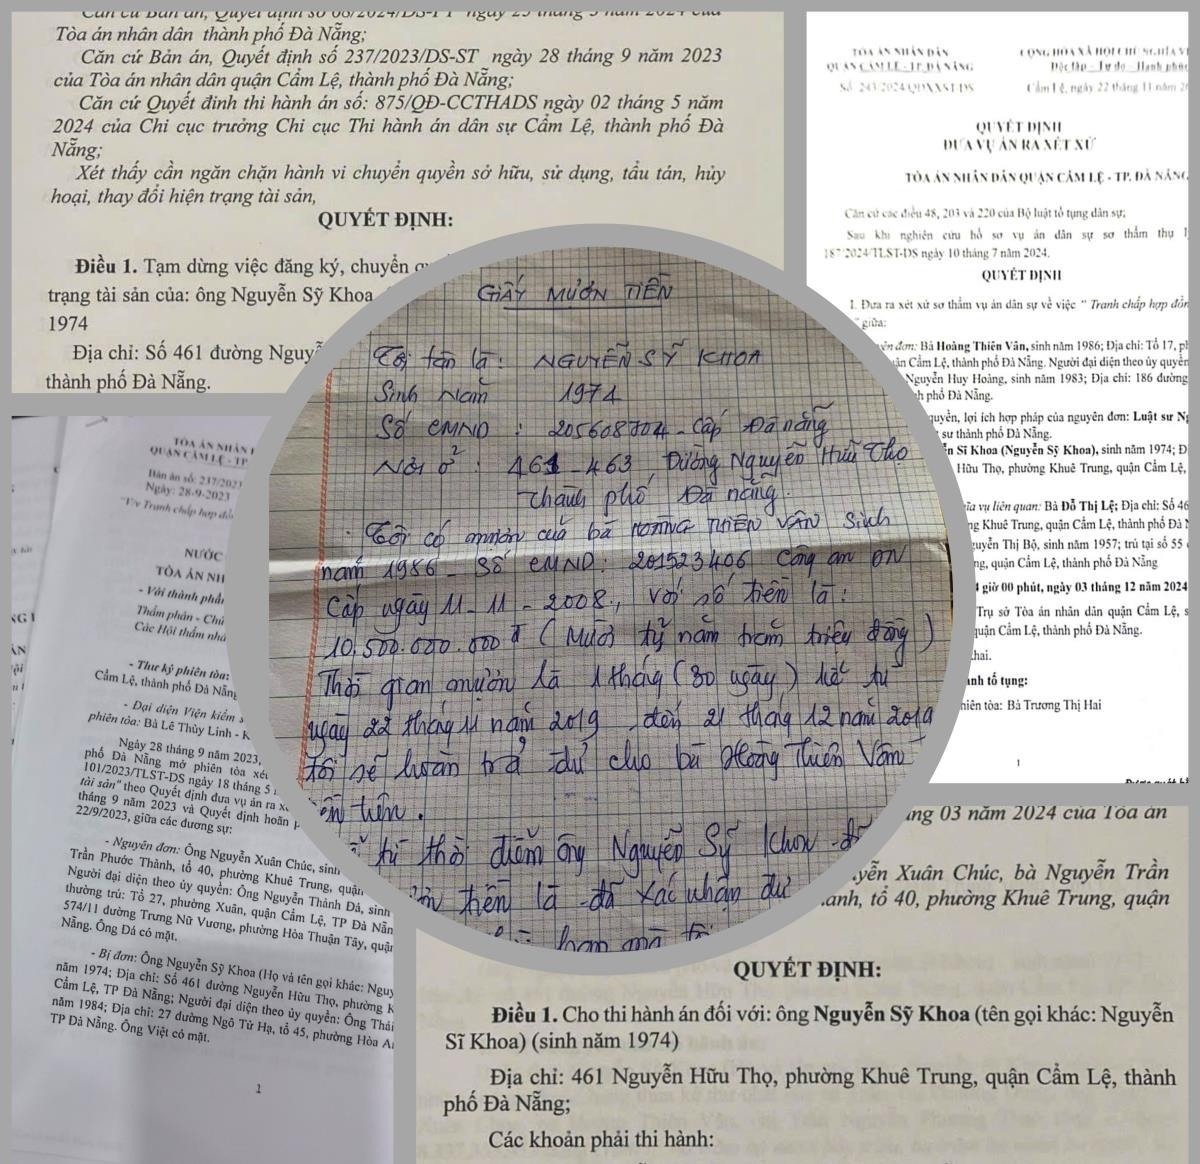 Căn cứ Bản án, Quyết định số 08/2024/DS-PT ngày 25 tháng 3 năm 2024 của
Tòa án nhân dân thành phố Đà Nẵng;
Căn cứ Bản án, Quyết định số 237/2023/DS-ST ngày 28 tháng 9 năm 2023
của Tòa án nhân dân quận Cẩm Lệ, thành phố Đà Nẵng;
Căn cứ Quyết đinh thi hành án số: 875/QĐ-CCTHADS ngày 02 tháng 5 năm
2024 của Chi cục trưởng Chi cục Thi hành án dân sự Cẩm Lệ, thành phố Đà
Nẵng;
Xét thấy cần ngăn chặn hành vi chuyển quyền sở hữu, sử dụng, tẩu tán, hủy
hoại, thay đổi hiện trạng tài sản,
QUYẾT ĐỊNH:
Điều 1. Tạm dừng việc đăng ký, chuyển
trạng tài sản của: ông Nguyễn Sỹ Khoa
1974
Địa chỉ: Số 461 đường Nguyễ
thành phố Đà Nẵng.
TÒA ÁN NHÂN DÂN
QUẬN CẨM LỆ - TP. ĐÀ NẴNG
Số: 243/2024/QĐXXST-DS
CỘNG HÒA XÃ HỘI CHỦ NGHĨA VI
Độc lập - Tự do - Hạnh phúc
Cẩm Lệ, ngày 22 tháng 11 năm 20
QUYẾT ĐỊNH
ĐƯA VỤ ÁN RA XÉT XỬ
TÒA ÁN NHÂN DÂN QUẬN CẨM LỆ - TP. ĐÀ NẴNG
Căn cứ các điều 48, 203 và 220 của Bộ luật tố tụng dân sự;
Sau khi nghiên cứu hồ sơ vụ án dân sự sơ thẩm thụ l
187/2024/TLST-DS ngày 10 tháng 7 năm 2024.
QUYẾT ĐỊNH
1. Đưa ra xét xử sơ thẩm vụ án dân sự về việc " Tranh chấp hợp đồn
" giữa:
yên đơn: Bà Hoàng Thiên Vân, sinh năm 1986; Địa chỉ: Tổ 17, ph
uận Cẩm Lệ, thành phố Đà Nẵng. Người đại diện theo ủy quyền
Nguyễn Huy Hoàng, sinh năm 1983; Địa chỉ: 186 đường
h phố Đà Nẵng.
quyền, lợi ích hợp pháp của nguyên đơn: Luật sư Ng
sư thành phố Đà Nẵng.
n Sĩ Khoa (Nguyễn Sỹ Khoa), sinh năm 1974; Đ
Hữu Thọ, phường Khuê Trung, quận Cẩm Lệ,
ĩa vụ liên quan: Bà Đỗ Thị Lệ; Địa chỉ: Số 46
ng Khuê Trung, quận Cẩm Lệ, thành phố Đà N
uyễn Thị Bộ, sinh năm 1957; trú tại số 55
ng, quận Cẩm Lệ, thành phố Đà Nẵng
giờ 00 phút, ngày 03 tháng 12 năm 2024
Trụ sở Tòa án nhân dân quận Cẩm Lệ, s
quận Cẩm Lệ, thành phố Đà Nẵng.
hai.
nh tố tụng:
hiên tòa: Bà Trương Thị Hai
1
GIẤY MƯỢN TIỀN
Tôi tên là: NGUYỄN SỸ KHOA
Sinh Năm 1974
Số CMND : 205608704 - Cấp Đà nẵng
Nơi ở : 461 - 463 Đường Nguyễn Hữu Thọ
Thành phố Đà nẵng.
Tôi có mượn của bà HOÀNG THIÊN VÂN Sinh
năm 1986 - Số CMND: 201523406 Công an ĐN
Cấp ngày 11 - 11 - 2008, với số tiền là:
10.500.000.000đ (Mười tỷ năm trăm triệu đồng)
Thời gian mượn là 1 tháng (30 ngày) kể từ
ngày 22 tháng 11 năm 2019 đến 21 tháng 12 năm 2019
tôi sẽ hoàn trả đủ cho bà Hoàng Thiên Vân
tiền.
từ thời điểm ông Nguyễn Sỹ Khoa
tiền là đã xác nhận đủ
TÒA ÁN NHÂN
QUẬN CẨM LỆ - TP
Bản án số: 237/2023
Ngày: 28-9-2023
"V/v Tranh chấp hợp đồ
NƯỚC
TÒA ÁN NH
- Với thành phần
Thẩm phán - Chủ
Các Hội thẩm nhâ
- Thư ký phiên tòa:
Cẩm Lệ, thành phố Đà Nẵng
- Đại diện Viện kiểm s
phiên tòa: Bà Lê Thùy Linh - K
Ngày 28 tháng 9 năm 2023,
phố Đà Nẵng mở phiên tòa xét
101/2023/TLST-DS ngày 18 tháng 5
tài sản" theo Quyết định đưa vụ án ra x
tháng 9 năm 2023 và Quyết định hoãn p
22/9/2023, giữa các đương sự:
- Nguyên đơn: Ông Nguyễn Xuân Chúc, sinh
Trần Phước Thành, tổ 40, phường Khuê Trung, quận
Người đại diện theo ủy quyền: Ông Nguyễn Thành Đá, sinh
thường trú: Tổ 27, phường Xuân, quận Cẩm Lệ, TP Đà Nẵn
574/11 đường Trưng Nữ Vương, phường Hòa Thuận Tây, quận
Nẵng. Ông Dá có mặt.
- Bị đơn: Ông Nguyễn Sỹ Khoa (Họ và tên gọi khác: Nguy
năm 1974; Địa chỉ: Số 461 đường Nguyễn Hữu Thọ, phường K
Cẩm Lệ, TP Đà Nẵng; Người đại diện theo ủy quyền: Ông Thái
năm 1984; Địa chỉ: 27 đường Ngô Tử Hạ, tổ 45, phường Hòa A
TP Đà Nẵng. Ông Việt có mặt.
1
ng 03 năm 2024 của Tòa án
yễn Xuân Chúc, bà Nguyễn Trần
hành, tổ 40, phường Khuê Trung, quận
QUYẾT ĐỊNH:
Điều 1. Cho thi hành án đối với: ông Nguyễn Sỹ Khoa (tên gọi khác: Nguyễn
Sĩ Khoa) (sinh năm 1974)
Địa chỉ: 461 Nguyễn Hữu Thọ, phường Khuê Trung, quận Cẩm Lệ, thành
phố Đà Nẵng;
Các khoản phải thi hành: